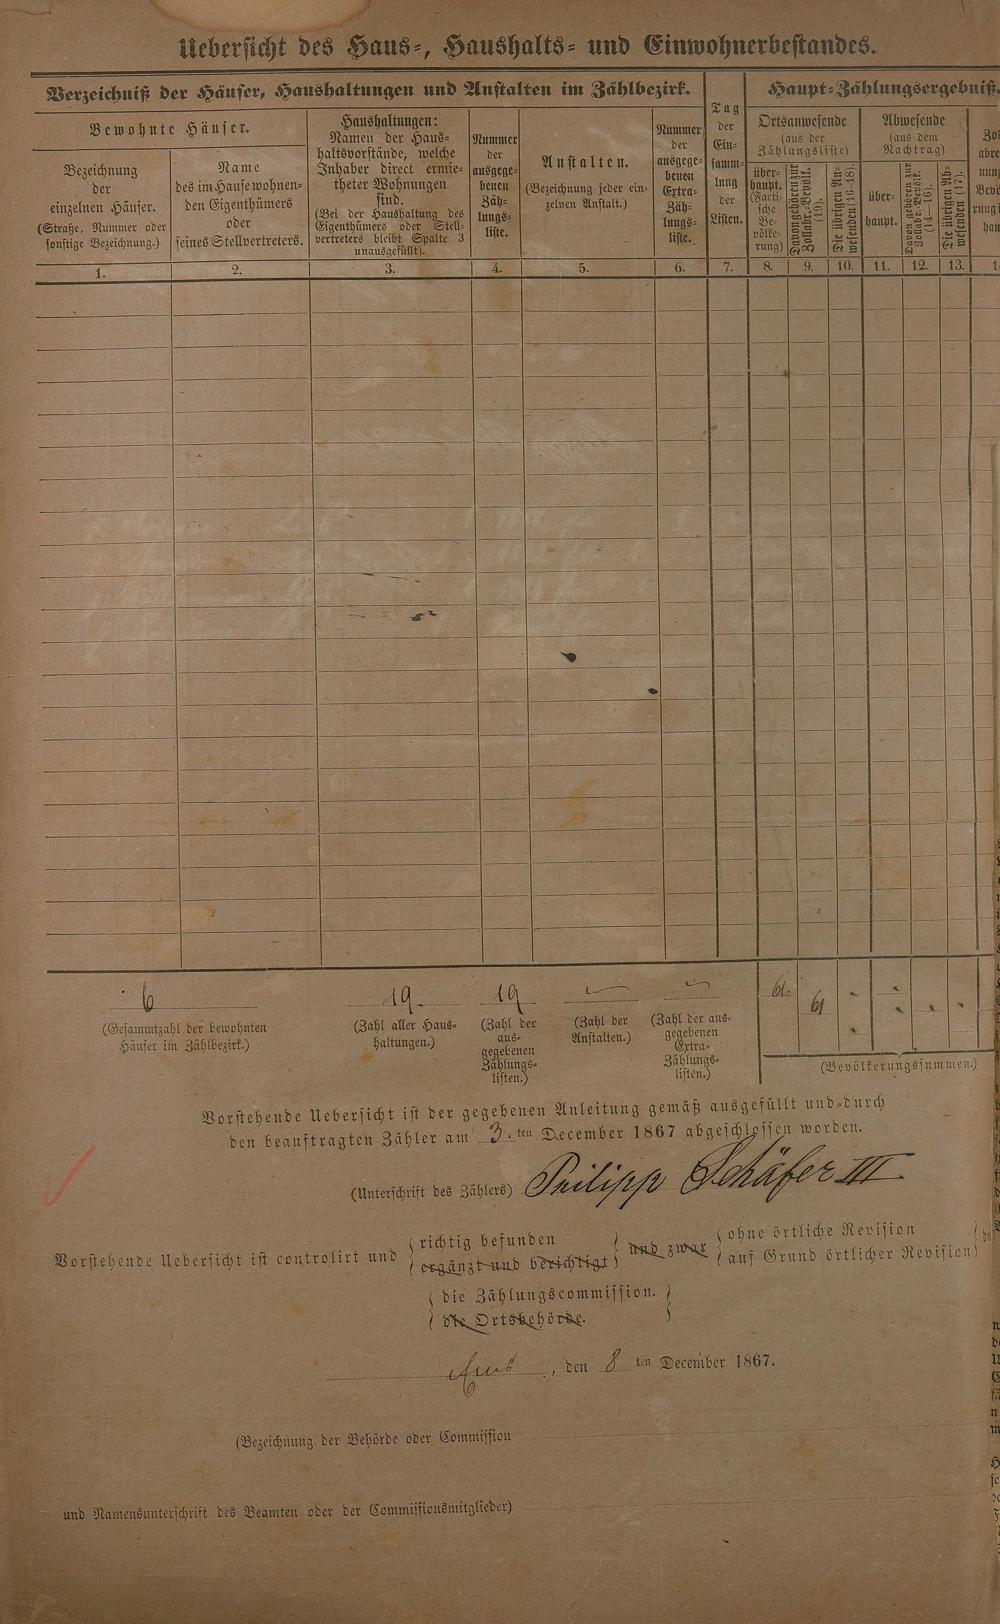 Uebersicht des Haus-, Haushalts- und Einwohnerbestandes.
Verzeichniß der Häuser, Haushaltungen und Anstalten im Zählbezirk.
Tag
der
Ein-
samm-
lung
der
Listen.
Haupt-Zählungsergebniß.
Bewohnte Häuser.
Bezeichnung
der
einzelnen Häuser.
(Straße, Nummer oder
sonstige Bezeichnung.)
Name
des im Hause wohnen-
den Eigenthümers
oder
seines Stellvertreters.
Haushaltungen:
Namen der Haus-
haltsvorstände, welche
Inhaber direct ermie-
theter Wohnungen
sind.
(Bei der Haushaltung des
Eigenthümers oder Stell-
vertreters bleibt Spalte 3
unausgefüllt).
Nummer
der
ausgege-
benen
Zäh-
lungs-
liste.
Anstalten.
(Bezeichnung jeder ein-
zelnen Anstalt.)
Nummer
der
ausgege-
benen
Extra-
Zäh-
lungs-
liste.
Ortsanwesende
(aus der
Zählungsliste)
über-
haupt.
(Facti-
sche
Be-
völke-
rung)
Davon gehören zur
Zollabr.-Bevölk.
(19).
Die übrigen An-
wesenden (16-18).
Abwesende
(aus dem
Nachtrag)
über-
haupt.
Davon gehören zur
Zollabr.-Bevölk.
(14-16).
Die übrigen Ab-
wesenden (17).
1. 2. 3. 4. 5. 6. 7. 8. 9. 10. 11. 12. 13.
6 19. 19 61. 61
(Gesammtzahl der bewohnten
Häuser im Zählbezirk.)
(Zahl aller Haus-
haltungen.)
(Zahl der
aus-
gegebenen
Zählungs-
listen.)
(Zahl der
Anstalten.)
(Zahl der aus-
gegebenen
Extra-
Zählungs-
listen.)
(Bevölkerungssummen.)
Vorstehende Uebersicht ist der gegebenen Anleitung gemäß ausgefüllt und durch
den beauftragten Zähler am 3. ten December 1867 abgeschlossen worden.
(Unterschrift des Zählers) Philipp Schäfer III
Vorstehende Uebersicht ist controlirt und
richtig befunden
ergänzt und berichtigt
und zwar
ohne örtliche Revision
auf Grund örtlicher Revision
die Zählungscommission.
die Ortsbehörde.
Ems, den 8 ten December 1867.
(Bezeichnung der Behörde oder Commission
und Namensunterschrift des Beamten oder der Commissionsmitglieder)